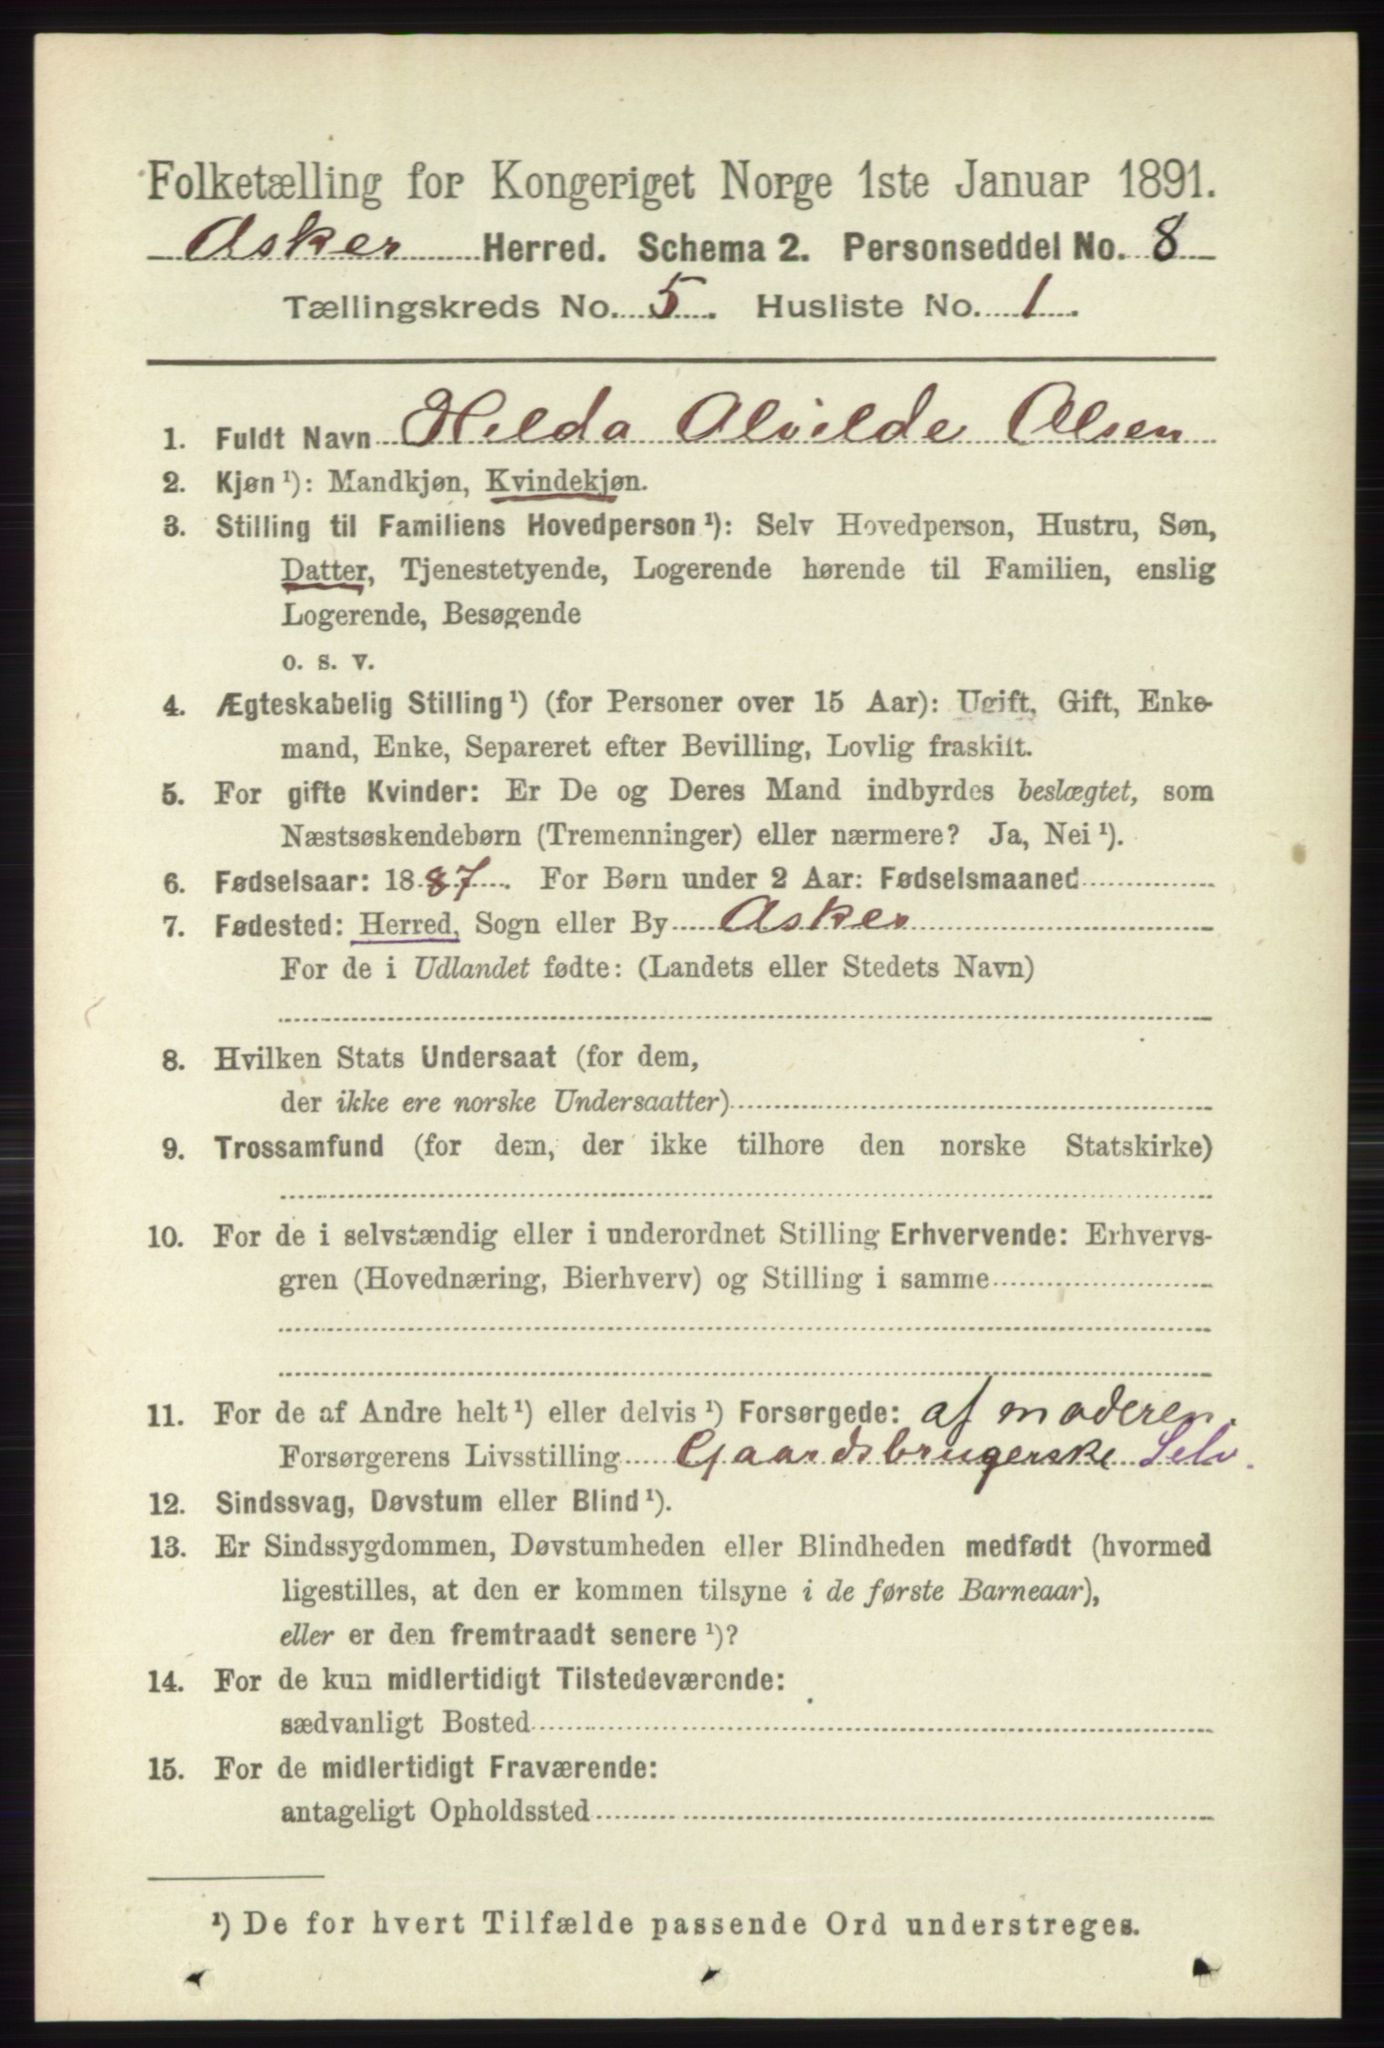 Folketælling for Kongeriget Norge 1ste Januar 1891.
Asker Herred. Schema 2. Personseddel No. 8
Tællingskreds No. 5. Husliste No. 1.
1. Fuldt Navn Hilda Alvilde Olsen
2. Kjøn ¹): Mandkjøn, Kvindekjøn.
3. Stilling til Familiens Hovedperson ¹): Selv Hovedperson, Hustru, Søn,
Datter, Tjenestetyende, Logerende hørende til Familien, enslig
Logerende, Besøgende
o. s. v.
4. Ægteskabelig Stilling ¹) (for Personer over 15 Aar): Ugift, Gift, Enke-
mand, Enke, Separeret efter Bevilling, Lovlig fraskilt.
5. For gifte Kvinder: Er De og Deres Mand indbyrdes beslægtet, som
Næstsøskendebørn (Tremenninger) eller nærmere? Ja, Nei ¹).
6. Fødselsaar: 1887. For Børn under 2 Aar: Fødselsmaaned
7. Fødested: Herred, Sogn eller By Asker
For de i Udlandet fødte: (Landets eller Stedets Navn)
8. Hvilken Stats Undersaat (for dem,
der ikke ere norske Undersaatter)
9. Trossamfund (for dem, der ikke tilhøre den norske Statskirke)
10. For de i selvstændig eller i underordnet Stilling Erhvervende: Erhvervs-
gren (Hovednæring, Bierhverv) og Stilling i samme
11. For de af Andre helt ¹) eller delvis ¹) Forsørgede: af moderen.
Forsørgerens Livsstilling Gaardsbrugerske Selv.
12. Sindssvag, Døvstum eller Blind ¹).
13. Er Sindssygdommen, Døvstumheden eller Blindheden medfødt (hvormed
ligestilles, at den er kommen tilsyne i de første Barneaar),
eller er den fremtraadt senere ¹)?
14. For de kun midlertidigt Tilstedeværende:
sædvanligt Bosted
15. For de midlertidigt Fraværende:
antageligt Opholdssted
¹) De for hvert Tilfælde passende Ord understreges.